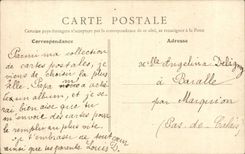 CARTE POSTALE
Certains pays étrangers n'acceptent pas la correspondance de ce côté, se renseigner à la Poste
Correspondance
Parmi ma collection
de cartes postales, je
viens de choisir la plus
belle. Papa m'a acheté
un album, et je se-
rai bien aise que tu
m'envoie des cartes pour
le remplir au plus vite
Je t'embrasse de tout cœur
ainsi que tes parents. Louis D.
Adresse
Angelina
à Baralle
par Marquion
(Pas-de-Calais)